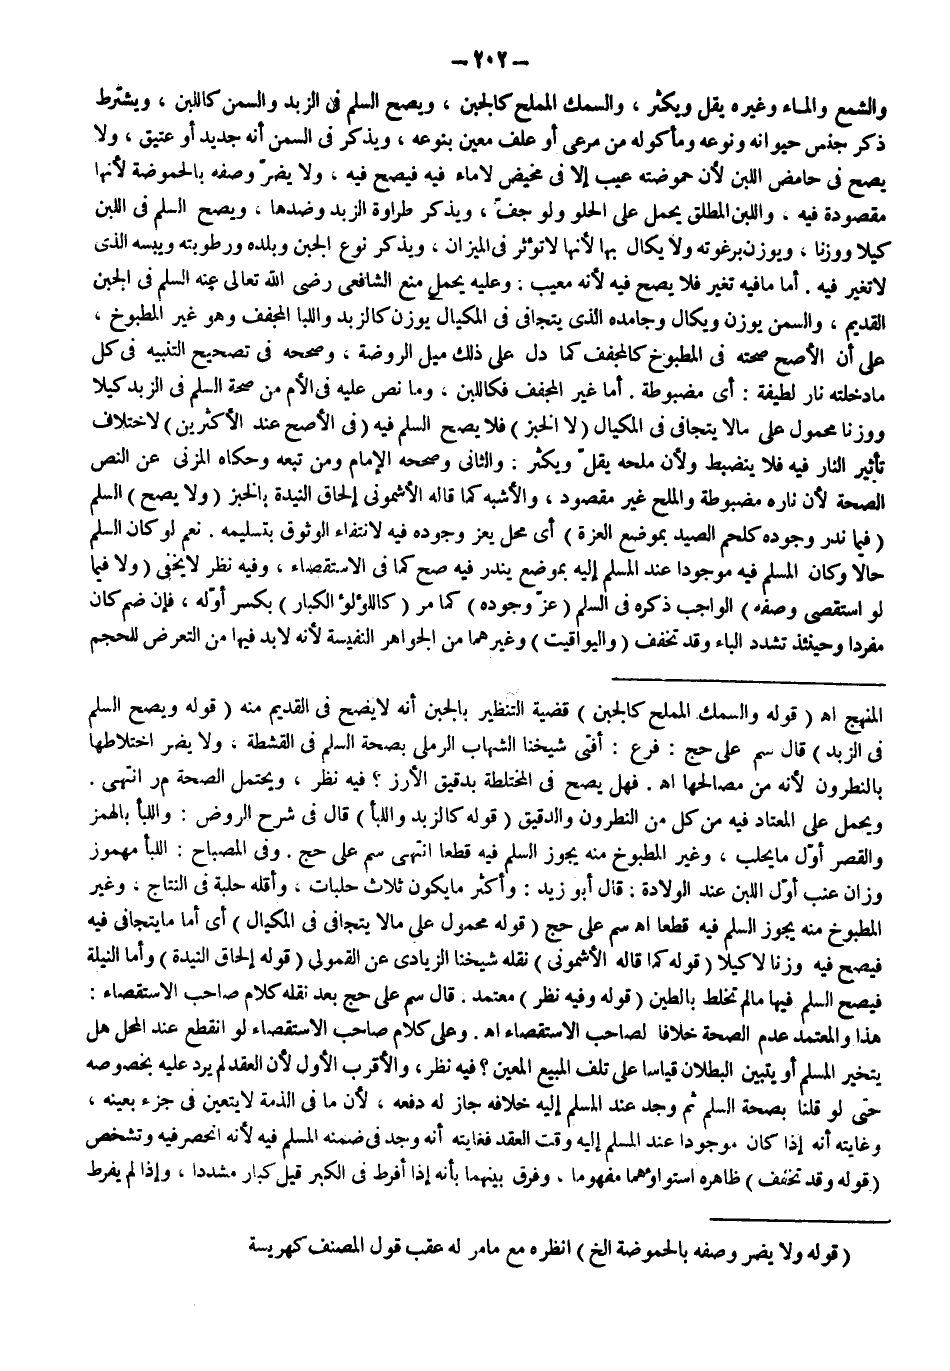 – ٢٠٢ –
والشمع والماء وغيره يقل ويكثر ، والسمك المملح كالجبن ، ويصح السلم فى الزبد والسمن كاللبن ، ويشترط
ذكر جنس حيوانه ونوعه ومأكوله من مرعى أو علف معين بنوعه ، ويذكر فى السمن أنه جديد أو عتيق ، ولا
يصح فى حامض اللبن لأن حموضته عيب إلا فى مخيض لاماء فيه فيصح فيه ، ولا يضرّ وصفه بالحموضة لأنها
مقصودة فيه ، واللبن المطلق يحمل على الحلو ولو جفّ ، ويذكر طراوة الزبد وضدها ، ويصح السلم فى اللبن
كيلا ووزنا ، ويوزن برغوته ولا يكال بها لأنها لاتؤثر فى الميزان ، ويذكر نوع الجبن وبلده ورطوبته ويبسه الذى
لاتغير فيه . أما مافيه تغير فلا يصح فيه لأنه معيب : وعليه يحمل منع الشافعى رضى الله تعالى عنه السلم فى الجبن
القديم ، والسمن يوزن ويكال وجامده الذى يتجافى فى المكيال يوزن كالزبد واللبا المجفف وهو غير المطبوخ ،
على أن الأصح صحته فى المطبوخ كالمجفف كما دل على ذلك ميل الروضة ، وصححه فى تصحيح التنبيه فى كل
مادخلته نار لطيفة : أى مضبوطة . أما غير المجفف فكاللبن ، وما نص عليه فى الأم من صحة السلم فى الزبد كيلا
ووزنا محمول على مالا يتجافى فى المكيال ( لا الخبز ) فلا يصح السلم فيه ( فى الأصح عند الأكثرين ) لاختلاف
تأثير النار فيه فلا ينضبط ولأن ملحه يقلّ ويكثر : والثانى وصححه الإمام ومن تبعه وحكاه المزنى عن النص
الصحة لأن ناره مضبوطة والملح غير مقصود ، والأشبه كما قاله الأشمونى إلحاق النيدة بالخبز ( ولا يصح ) السلم
( فيما ندر وجوده كلحم الصيد بموضع العزة ) أى محل يعز وجوده فيه لانتفاء الوثوق بتسليمه . نعم لو كان السلم
حالا وكان المسلم فيه موجودا عند المسلم إليه بموضع يندر فيه صح كما فى الاستقصاء ، وفيه نظر لايخفى ( ولا فيما
لو استقصى وصفه ) الواجب ذكره فى السلم ( عزّ وجوده ) كما مر ( كاللؤلؤ الكبار ) بكسر أوّله ، فإن ضم كان
مفردا وحينئذ تشدد الباء وقد تخفف ( واليواقيت ) وغيرهما من الجواهر النفيسة لأنه لابد فيها من التعرض للحجم
المنهج اه ( قوله والسمك المملح كالجبن ) قضية التنظير بالجبن أنه لايصح فى القديم منه ( قوله ويصح السلم
فى الزبد ) قال سم على حج : فرع : أفتى شيخنا الشهاب الرملى بصحة السلم فى القشطة ، ولا يضر اختلاطها
بالنطرون لأنه من مصالحها اه . فهل يصح فى المختلطة بدقيق الأرز ؟ فيه نظر ، ويحتمل الصحة م ر انتهى .
ويحمل على المعتاد فيه من كل من النطرون والدقيق ( قوله كالزبد واللبأ ) قال فى شرح الروض : واللبأ بالهمز
والقصر أوّل مايحلب ، وغير المطبوخ منه يجوز السلم فيه قطعا انتهى سم على حج . وفى المصباح : اللبأ مهموز
وزان عنب أوّل اللبن عند الولادة : قال أبو زيد : وأكثر مايكون ثلاث حلبات ، وأقله حلبة فى النتاج ، وغير
المطبوخ منه يجوز السلم فيه قطعا اه سم على حج ( قوله محمول على مالا يتجافى فى المكيال ) أى أما مايتجافى فيه
فيصح فيه وزنا لا كيلا ( قوله كما قاله الأشمونى ) نقله شيخنا الزيادى عن القمولى ( قوله إلحاق النيدة ) وأما النيلة
فيصح السلم فيها مالم تخلط بالطين ( قوله وفيه نظر ) معتمد . قال سم على حج بعد نقله كلام صاحب الاستقصاء :
هذا والمعتمد عدم الصحة خلافا لصاحب الاستقصاء اه . وعلى كلام صاحب الاستقصاء لو انقطع عند المحل هل
يتخير المسلم أو يتبين البطلان قياسا على تلف المبيع المعين ؟ فيه نظر ، والأقرب الأول لأن العقد لم يرد عليه بخصوصه
حتى لو قلنا بصحة السلم ثم وجد عند المسلم إليه خلافه جاز له دفعه ، لأن ما فى الذمة لايتعين فى جزء بعينه ،
وغايته أنه إذا كان موجودا عند المسلم إليه وقت العقد فغايته أنه وجد فى ضمنه المسلم فيه لأنه انحصر فيه وتشخص
( قوله وقد تخفف ) ظاهره استواؤهما مفهوما ، وفرق بينهما بأنه إذا أفرط فى الكبر قيل كبار مشددا ، وإذا لم يفرط
( قوله ولا يضر وصفه بالحموضة الخ ) انظره مع مامر له عقب قول المصنف كهريسة